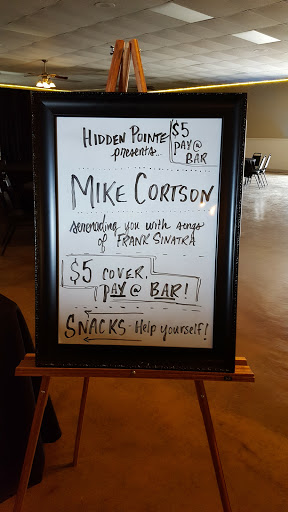 HIDDEN POINTE
presents..
$5
PAY @
BAR
MIKE CORTSON
serenading you with songs
of FRANK SINATRA
$5 COVER.
PAY @ BAR!
SNACKS - Help yourself!